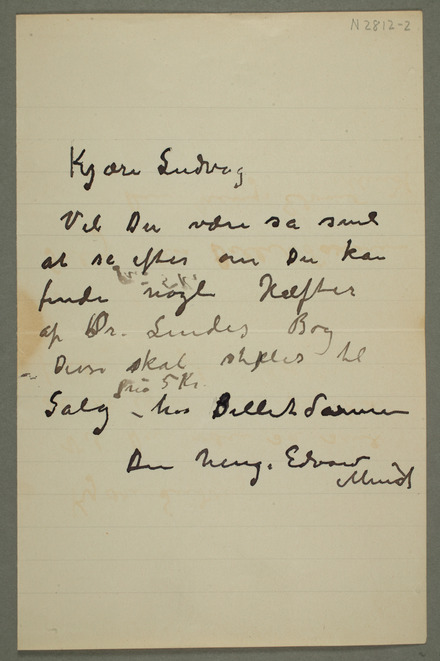 N 2812-2
Kjære Ludvig
Vil Du være så snil
at se efter om Du kan
finde nogle Hæfter
af Dr. Lindes Bog
– Disse skal stilles til
Pris 5 Kr.
Salg – hos Billetdamen
Din heng. Edvard
Munch